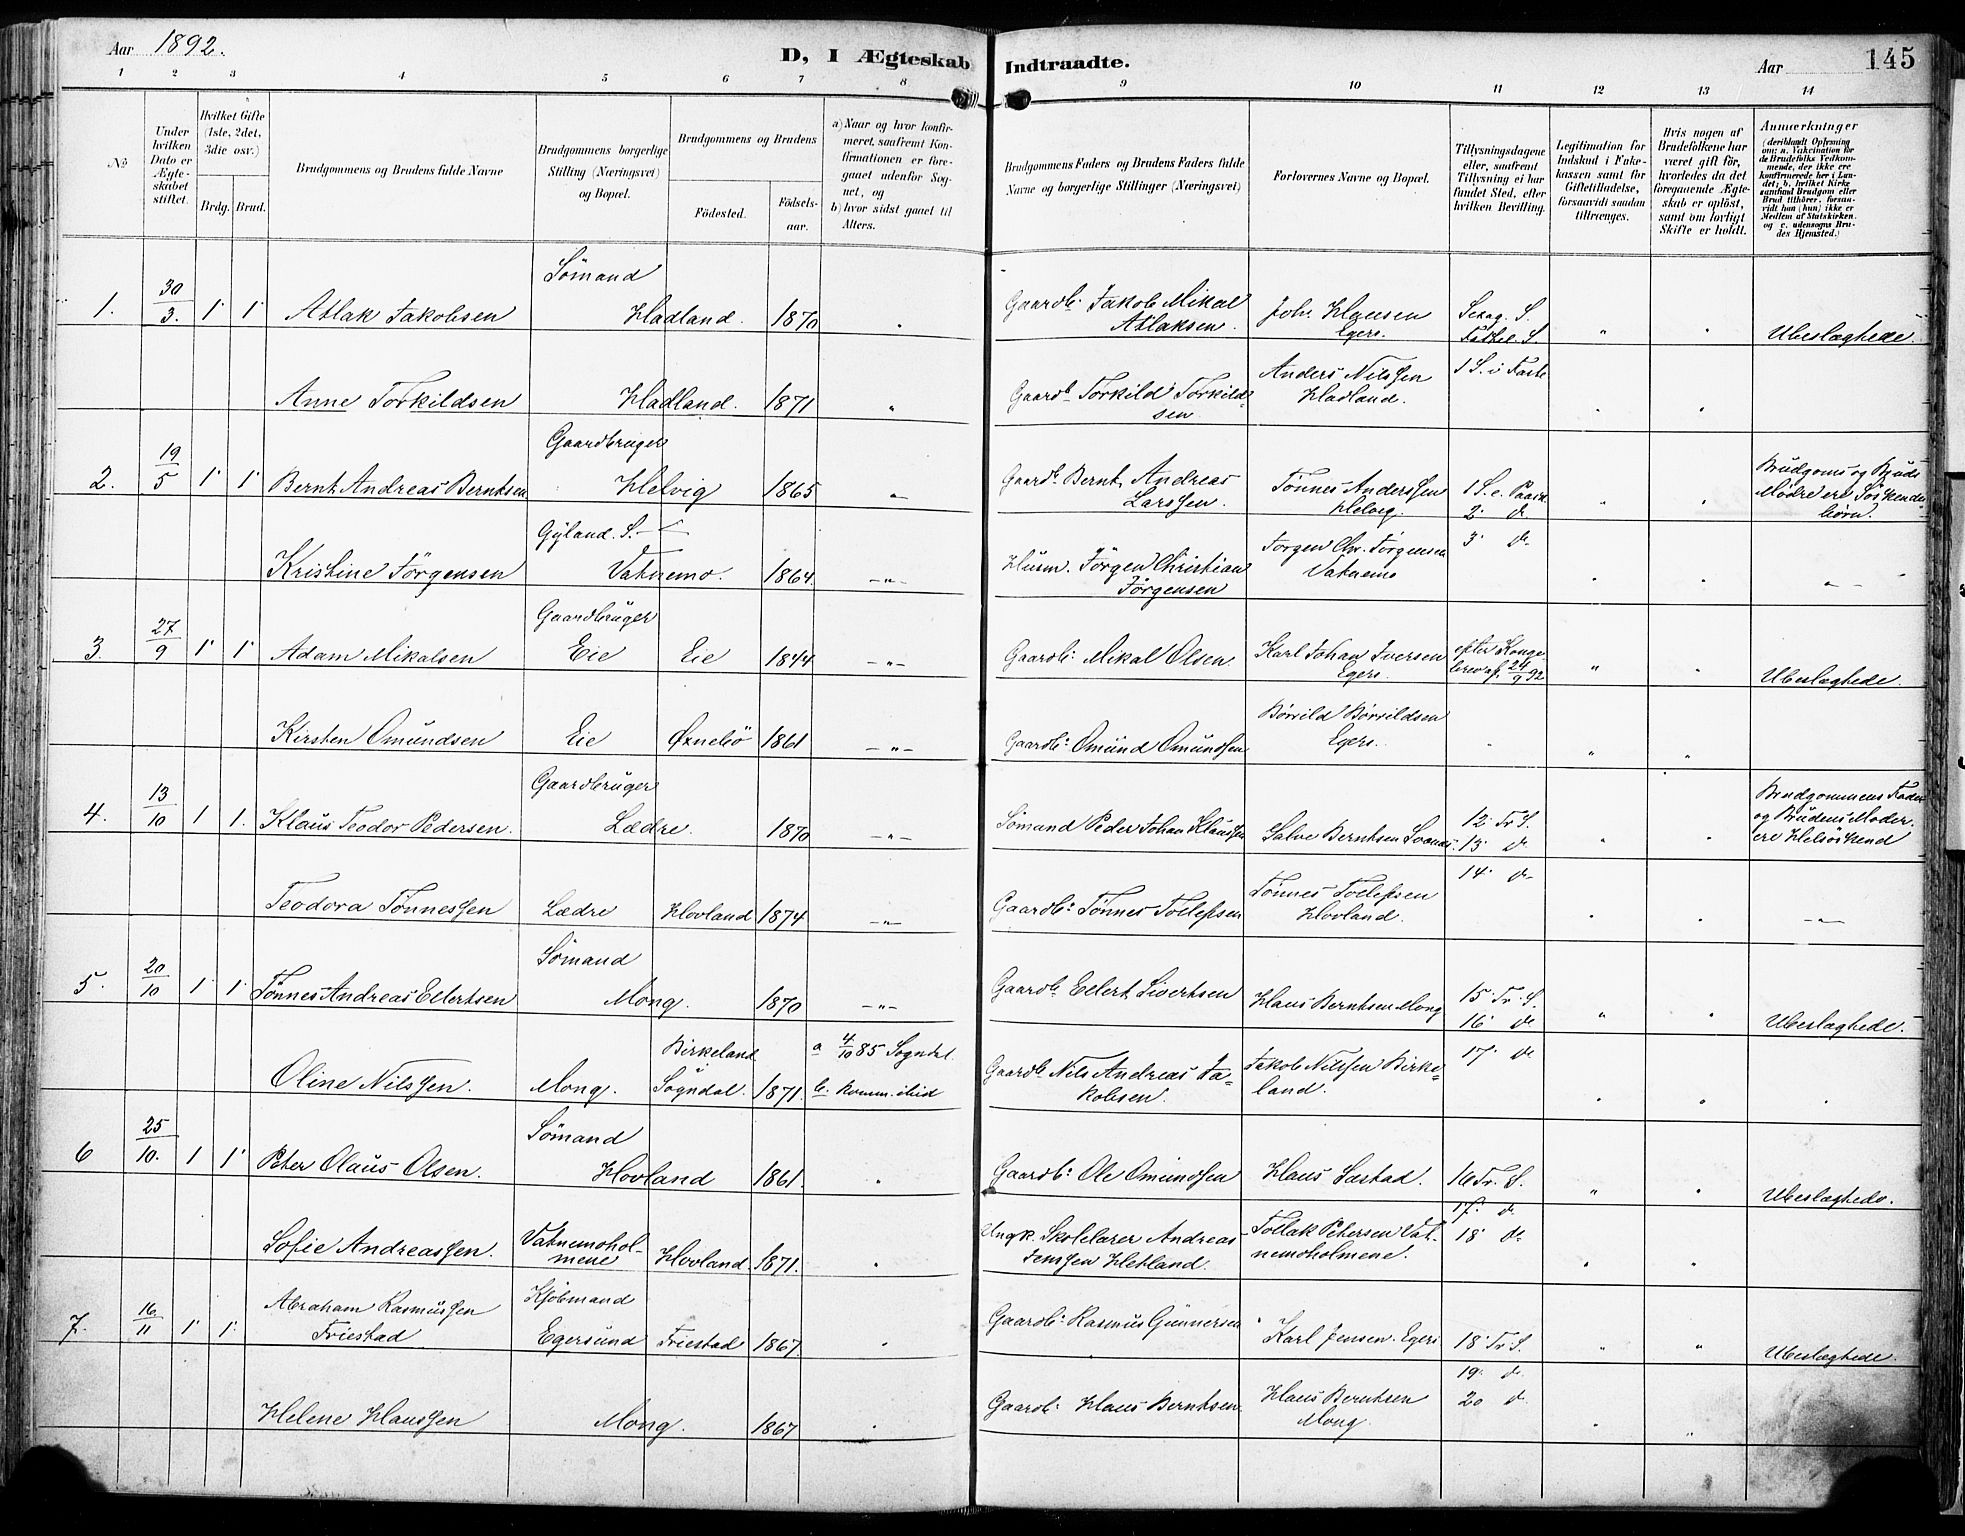 Aar 1892.
D, I Ægteskab Indtraadte.
Aar
145
1 2 3 4 5 6 7 8 9 10 11 12 13 14
№
Under hvilken Dato er Ægteskabet stiftet.
Hvilket Gifte (1ste, 2det, 3die osv.)
Brdg. Brud.
Brudgommens og Brudens fulde Navne
Brudgommens borgerlige Stilling (Næringsvei) og Bopæl.
Brudgommens og Brudens
Födested.
Födselsaar.
a) Naar og hvor konfirmeret, saafremt Konfirmationen er foregaaet udenfor Sognet, og
b) hvor sidst gaaet til Alters.
Brudgommens Faders og Brudens Faders fulde Navne og borgerlige Stillinger (Næringsvei)
Forlovernes Navne og Bopæl.
Tillysningsdagene eller, saafremt Tillysning ei har fundet Sted, efter hvilken Bevilling.
Legitimation for Indskud i Enkekassen samt for Giftetilladelse, forsaavidt saadan tiltrænges.
Hvis nogen af Brudefolkene har været gift för, hvorledes da det foregaaende Ægteskab er oplöst, samt om lovligt Skifte er holdt.
Anmærkninger
(deriblandt Oplysning om: a. Vakcination for de Brudefolks Vedkommende, der ikke ere konfirmerede her i Landet; b. hvilket Kirkesamfund Brudgom eller Brud tilhörer, forsaavidt han (hun) ikke er Medlem af Statskirken, og c. udensogns Brudes Hjemsted.)
1. 30/3. 1 1 Aslak Jakobsen Sömand Hadland. 1870 " Gaardb. Jakob Mikal Aslaksen. Joh. Hansen Egers. " " Ubeslægtede.
Anne Torkildsen Hadland. 1871 " Gaardb. Torkild Torkildsen Anders Nilssen Hadland. 1 S. i Faste
2. 19/5 1 1 Bernt Andreas Berntsen Gaardbruger Helvig 1865 " Gaardb. Bernt Andreas Larssen. Tönnes Anderssen Helvig. 1 S. e. Paask 2 d. " " Brudgoms og Bruds Mödre ere Söskendebörn.
Kristine Jörgensen Gyland. S. Vatnemo. 1864. -"- Husm. Jörgen Christian Jörgensen Jörgen Chr. Jörgensen Vatnemo 3 d. -"-
3. 27/9 1 1 Adam Mikalsen Gaardbruger Eie Eie 1844 -"- Gaardb. Mikal Olsen. Karl Johan Iversen Egers. efter Kongebrev af 24/9 92 " " Ubeslægtede.
Kirsten Omundsen Eie Øxnebö 1861 -"- Gaardb. Omund Omundsen Börrild Börrildsen Egers.
4. 13/10 1 1. Klaus Teodor Pedersen. Gaardbruger Lædre. 1870 -"- Sömand Peder Johan Klaussen Salve Berntsen Svanes. 12 Tr S. 13 d. Brudgommens Fader og Brudens Moder ere Helsöskend
Teodora Tönnessen Lædre Hovland 1874 -"- Gaardb. Tönnes Tollefsen Tönnes Tollefsen Hovland. 14 d. -"-
5. 20/10 1 1 Tönnes Andreas Eilertsen Sömand Mong. 1870 -"- Gaardb. Eilert Sivertsen Klaus Berntsen Mong 15 Tr. S. 16 d. " " Ubeslægtede.
Oline Nilssen. Mong. Birkeland Sogndal. 1871. a 4/10 85 Sogndal. b. komm. ibid Gaardb. Nils Andreas Jakobsen. Jakob Nilssen Birkeland. 17 d.
6 25/10. 1 1 Peter Olaus Olsen. Sömand Hovland 1861. " Gaardb. Ole Omundsen Klaus Sæstad. 16 Tr. S. 17. d. " " Ubeslægtede.
Sofie Andreassen. Vatnemoholmene Hovland. 1871. " Skolelærer Andreas Jenssen Hetland. Tollak Petersen Vatnemoholmene. 18 d.
7. 16/11 1 1 Abraham Rasmussen Friestad Kjöbmand Egersund Friestad 1867. " Gaardb. Rasmus Gunnersen Karl Jensen. Egers 18 Tr S. " " Ubeslægtede.
Helene Klaussen Mong. 1867 " Gaardb. Klaus Berntsen Klaus Berntsen Mong. 19. d. 20 d.